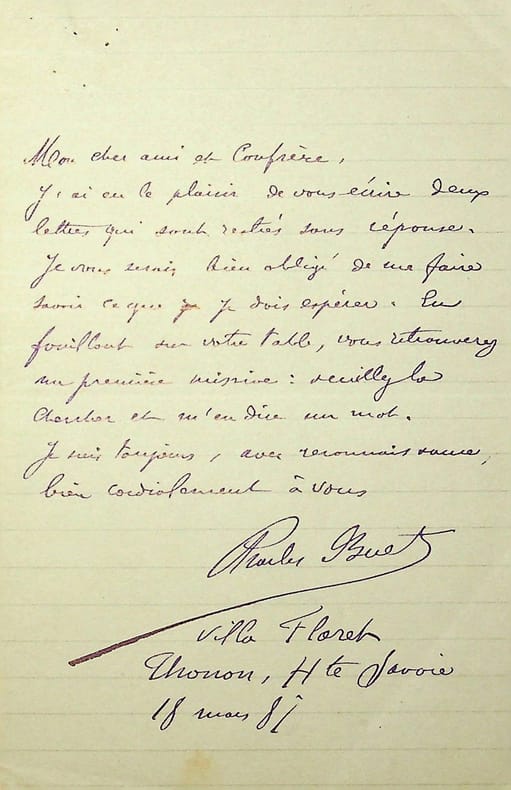 Mon cher ami et Confrère,
J'ai eu le plaisir de vous écrire deux
lettres qui sont restées sans réponse.
Je vous serais bien obligé de me faire
savoir ce que je dois espérer. En
fouillant sur votre table, vous retrouverez
ma première missive : veuillez la
chercher et m'en dire un mot.
Je suis toujours, avec reconnaissance,
bien cordialement à vous
Charles Buet
Villa Floret
Thonon, Hte Savoie
18 mars